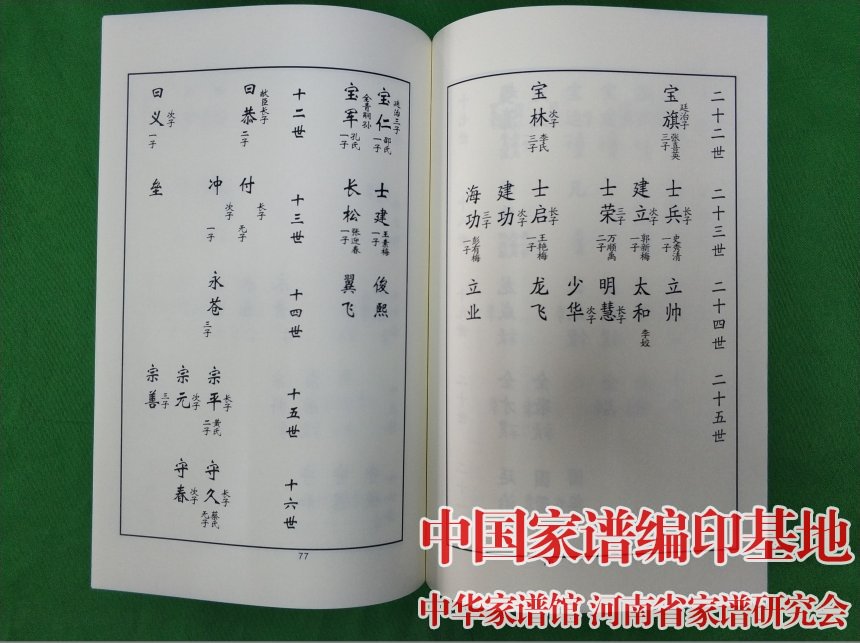 二十二世
二十三世
二十四世
二十五世
宝旗
廷治子
张喜英
三子
士兵
长子
史秀清
一子
立帅
建立
次子
郭新梅
一子
太和
李姣
士荣
三子
万顺禹
二子
明慧
长子
少华
次子
宝林
次子
李氏
三子
士启
长子
王艳梅
一子
龙飞
建功
次子
海功
三子
彭有梅
一子
立业
宝仁
廷治三子
邵氏
一子
士建
王素梅
一子
俊熙
宝军
金青嗣孙
孔氏
一子
长松
张迎春
一子
翼飞
十二世
十三世
十四世
十五世
十六世
曰恭
献臣长子
二子
付
长子
无子
冲
次子
一子
永苍
三子
宗平
长子
黄氏
二子
守久
长子
蔡氏
无子
宗元
次子
守春
次子
宗善
三子
曰义
次子
一子
垒
77
中国家谱编印基地
中华家谱馆 河南省家谱研究会